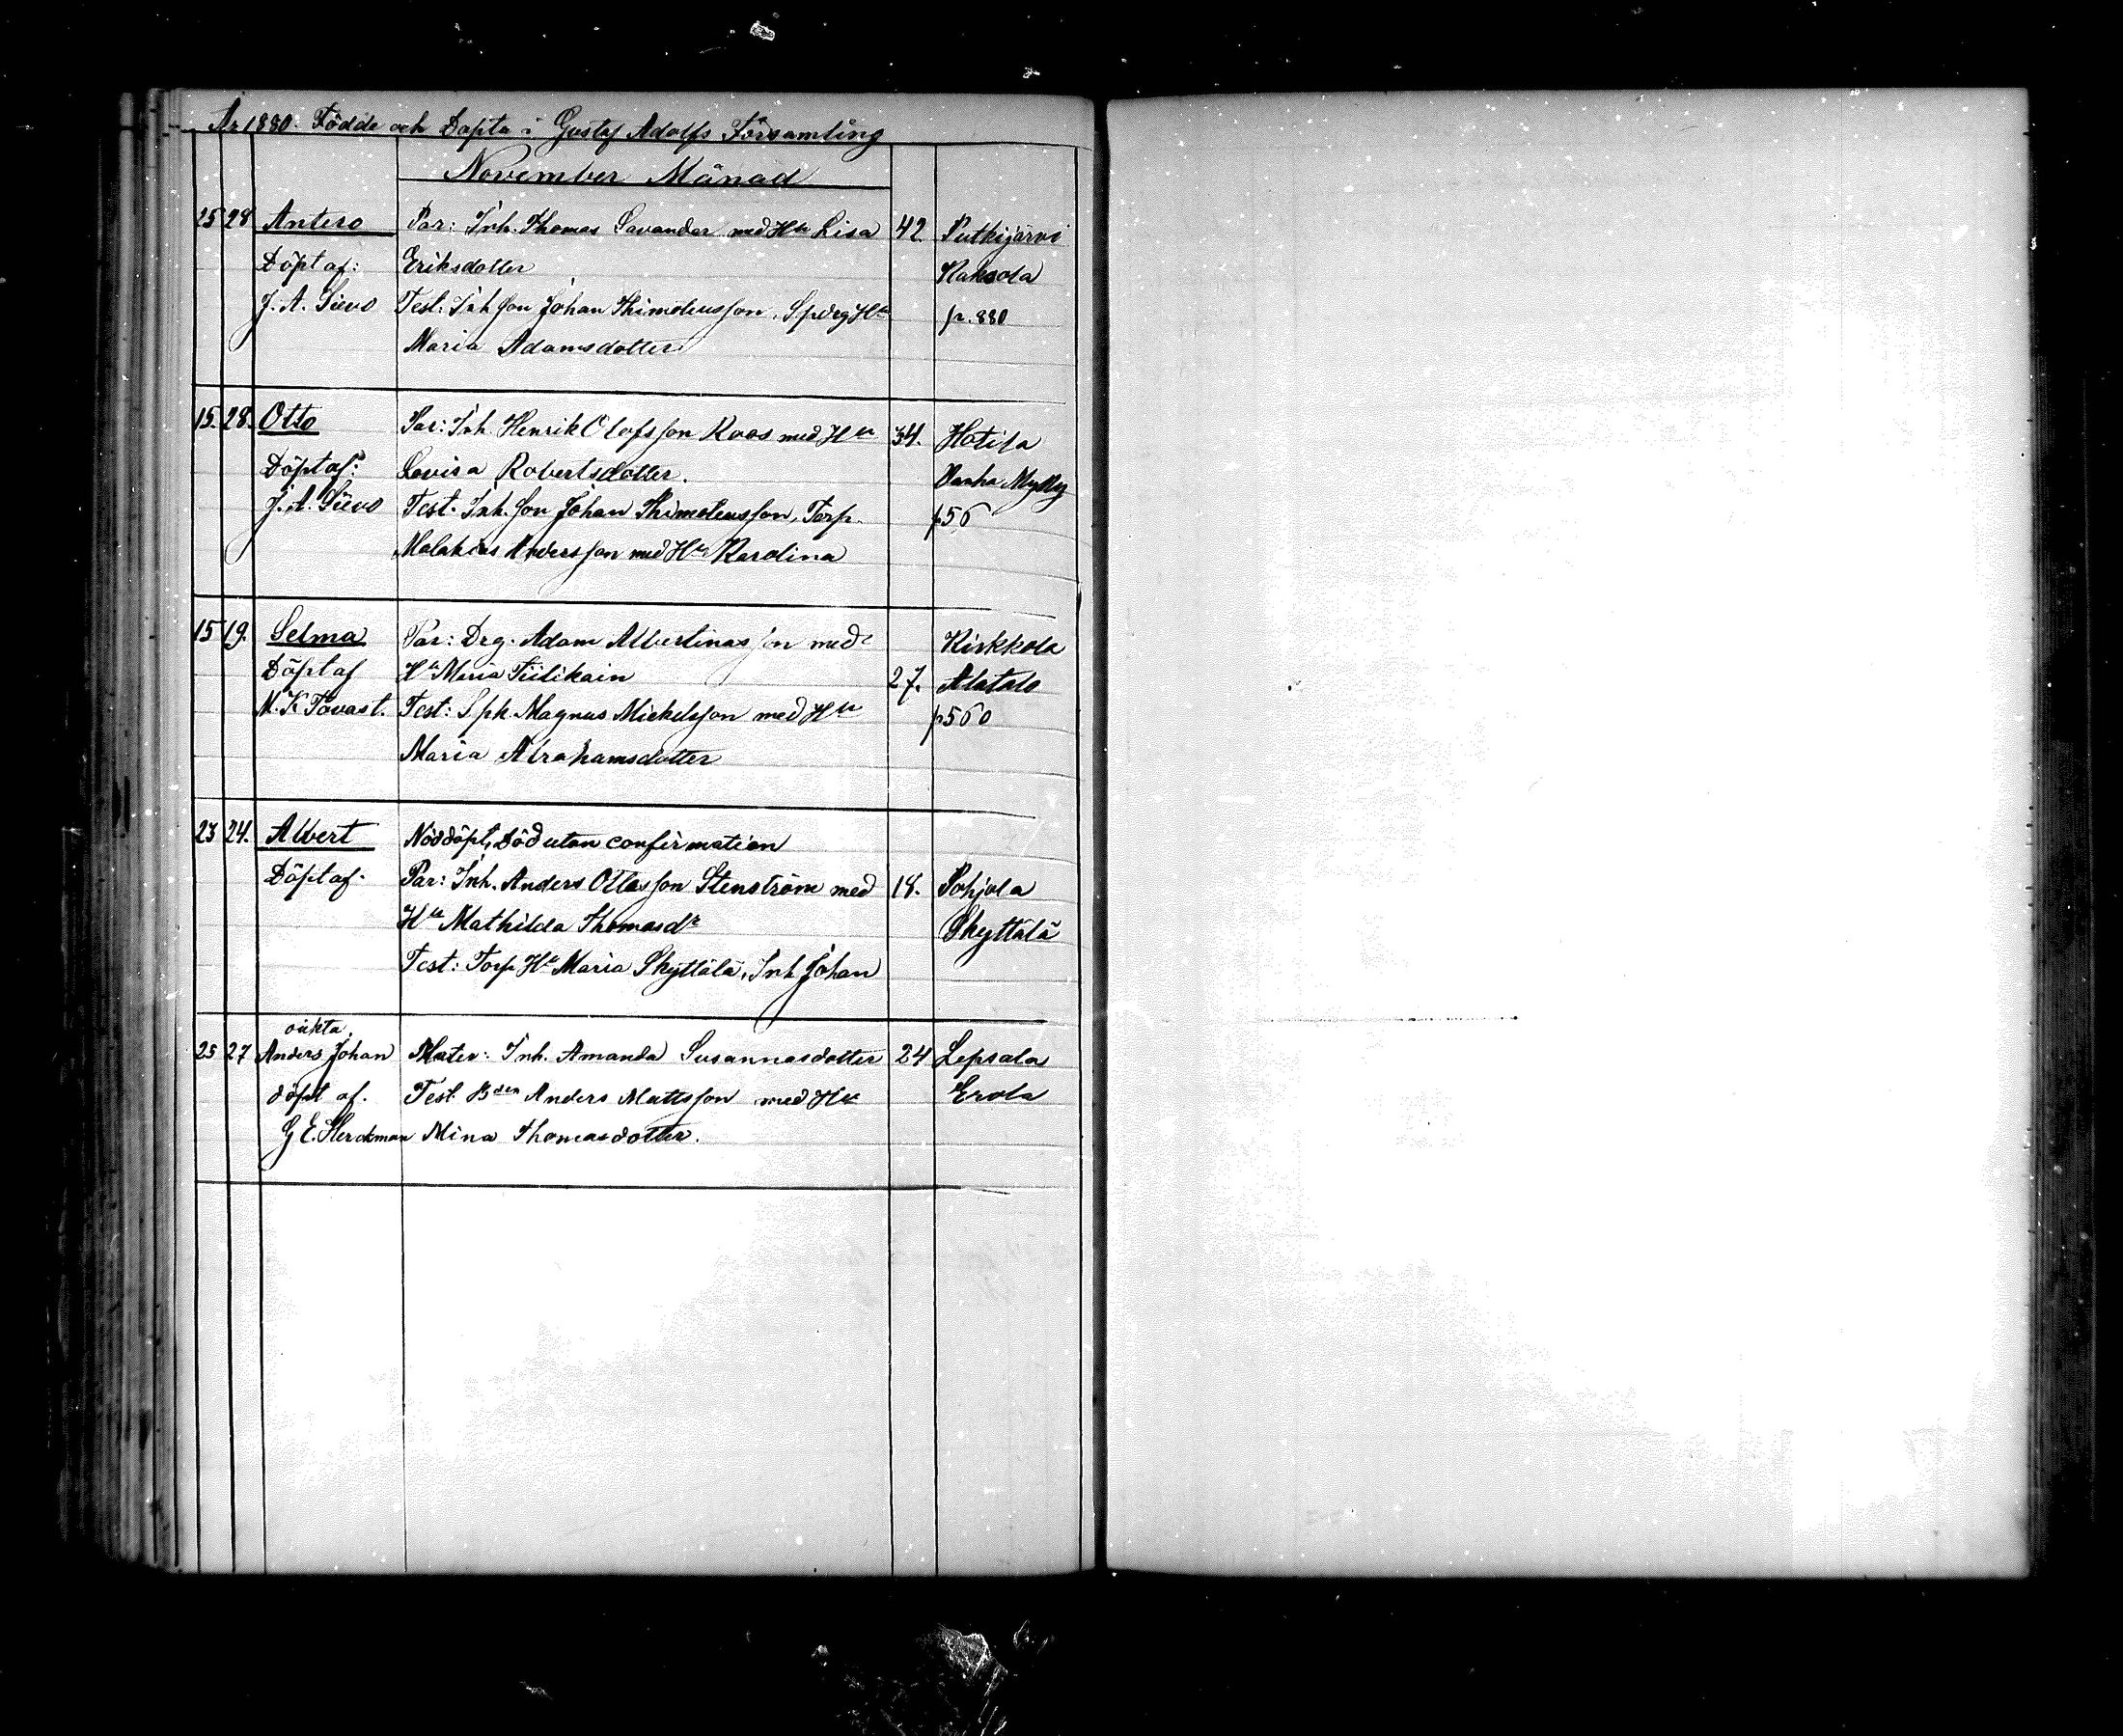 År 1880. Födde och Döpta i Gustaf Adolfs Församling
November Månad
25 28 Antero Par: Inh. Thomas Savander med Hu Lisa 42. Putkijärvi
Döpt af: Eriksdotter Kaksola
J. A. Sievo Test: Inh Son Johan Thimoteusson, Spdrg Hu p. 880
Maria Adamsdotter
15. 28. Otto Par: Inh. Henrik Olofsson Roos med Hu 34. Hotila
Döpt af: Lovisa Robertsdotter. Vanha Mylly
J. A. Sievo Test. Inh. Son Johan Thimoteusson, Torp. p 56
Malakias Andersson med Hu Karolina
15 19. Selma Par: Drg. Adam Albertinasson med Kirkkola
Döpt af Hu Maria Tiilikain 27. Alatalo
M. K. Tavast. Test: Spk. Magnus Mickelsson med Hu p 560
Maria Abrahamsdotter
23 24. Albert Nöddöpt, Död utan confirmation
Döpt af. Par: Inh. Anders Ottosson Stenström med 18. Pohjola
Hu Mathilda Thomasdr Skyttälä
Test: Torp Hu Maria Skyttälä, Inh Johan
oäkta.
25 27 Anders Johan Mater: Inh. Amanda Susannasdotter 24 Lepsala
döpt af. Test. Bden Anders Mattsson med Hu Erola
G E. Herckman Mina Thomasdotter.